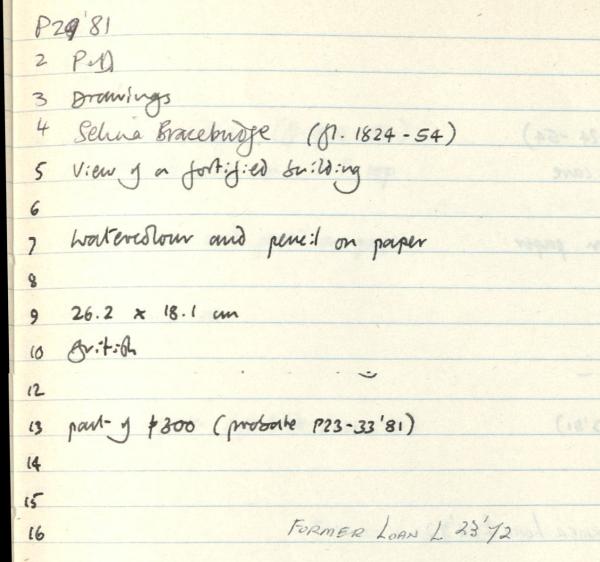 P29'81
2 P+D
3 Drawings
4 Selina Bracebridge (fl. 1824-54)
5 View of a fortified building
6
7 Watercolour and pencil on paper
8
9 26.2 x 18.1 cm
10 British
12
13 part of £300 (probate P23-33'81)
14
15
16 FORMER LOAN L 23'72